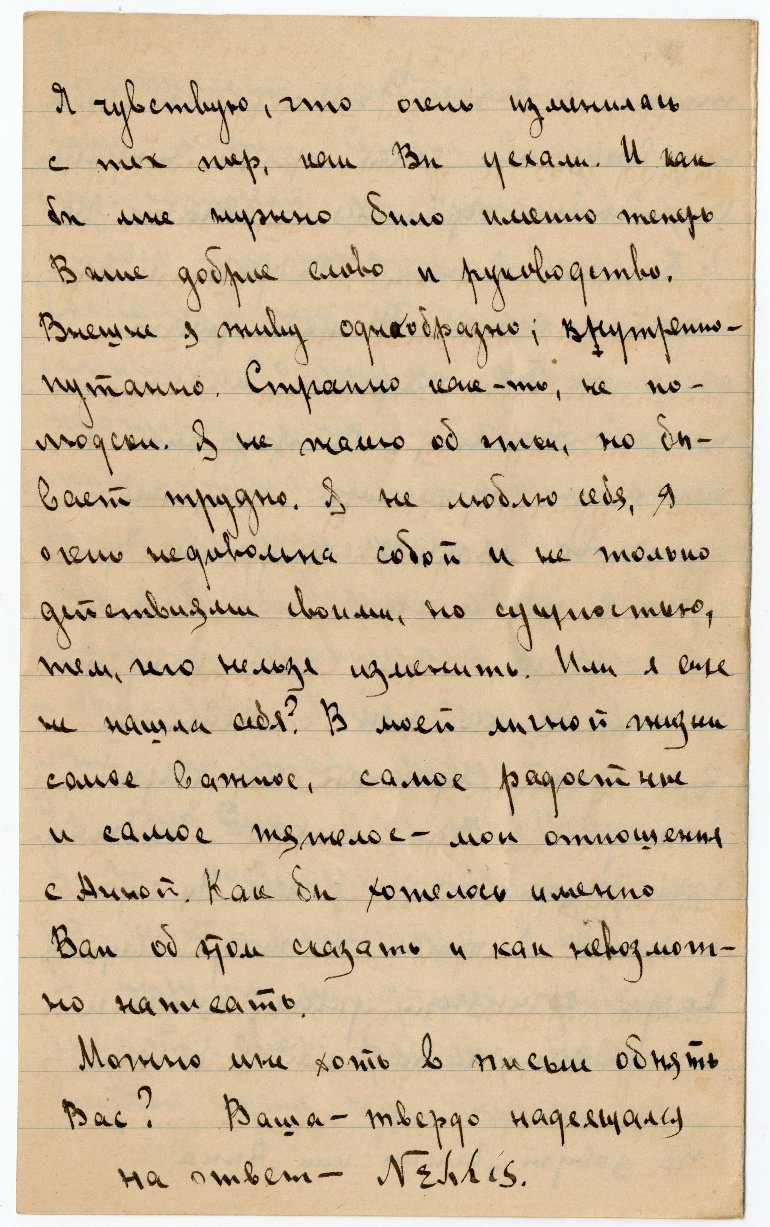 Я чувствую, что очень изменилась
с тех пор, как Вы уехали. И как
бы мне нужно было именно теперь
Ваше доброе слово и руководство.
Внешне я живу однообразно; внутренно-
путанно. Странно как-то, не по-
людски. Я не жалею об этом, но бы-
вает трудно. Я не люблю себя, я
очень недовольна собой и не только
действиями своими, но сущностью,
тем, чего нельзя изменить. Или я еще
не нашла себя? В моей личной жизни
самое важное, самое радостное
и самое тяжелое – мои отношения
с Анной. Как бы хотелось именно
Вам об этом сказать и как невозмож-
но написать.
Можно мне хоть в письме обнять
Вас? Ваша – твердо надеящаяся
на ответ –